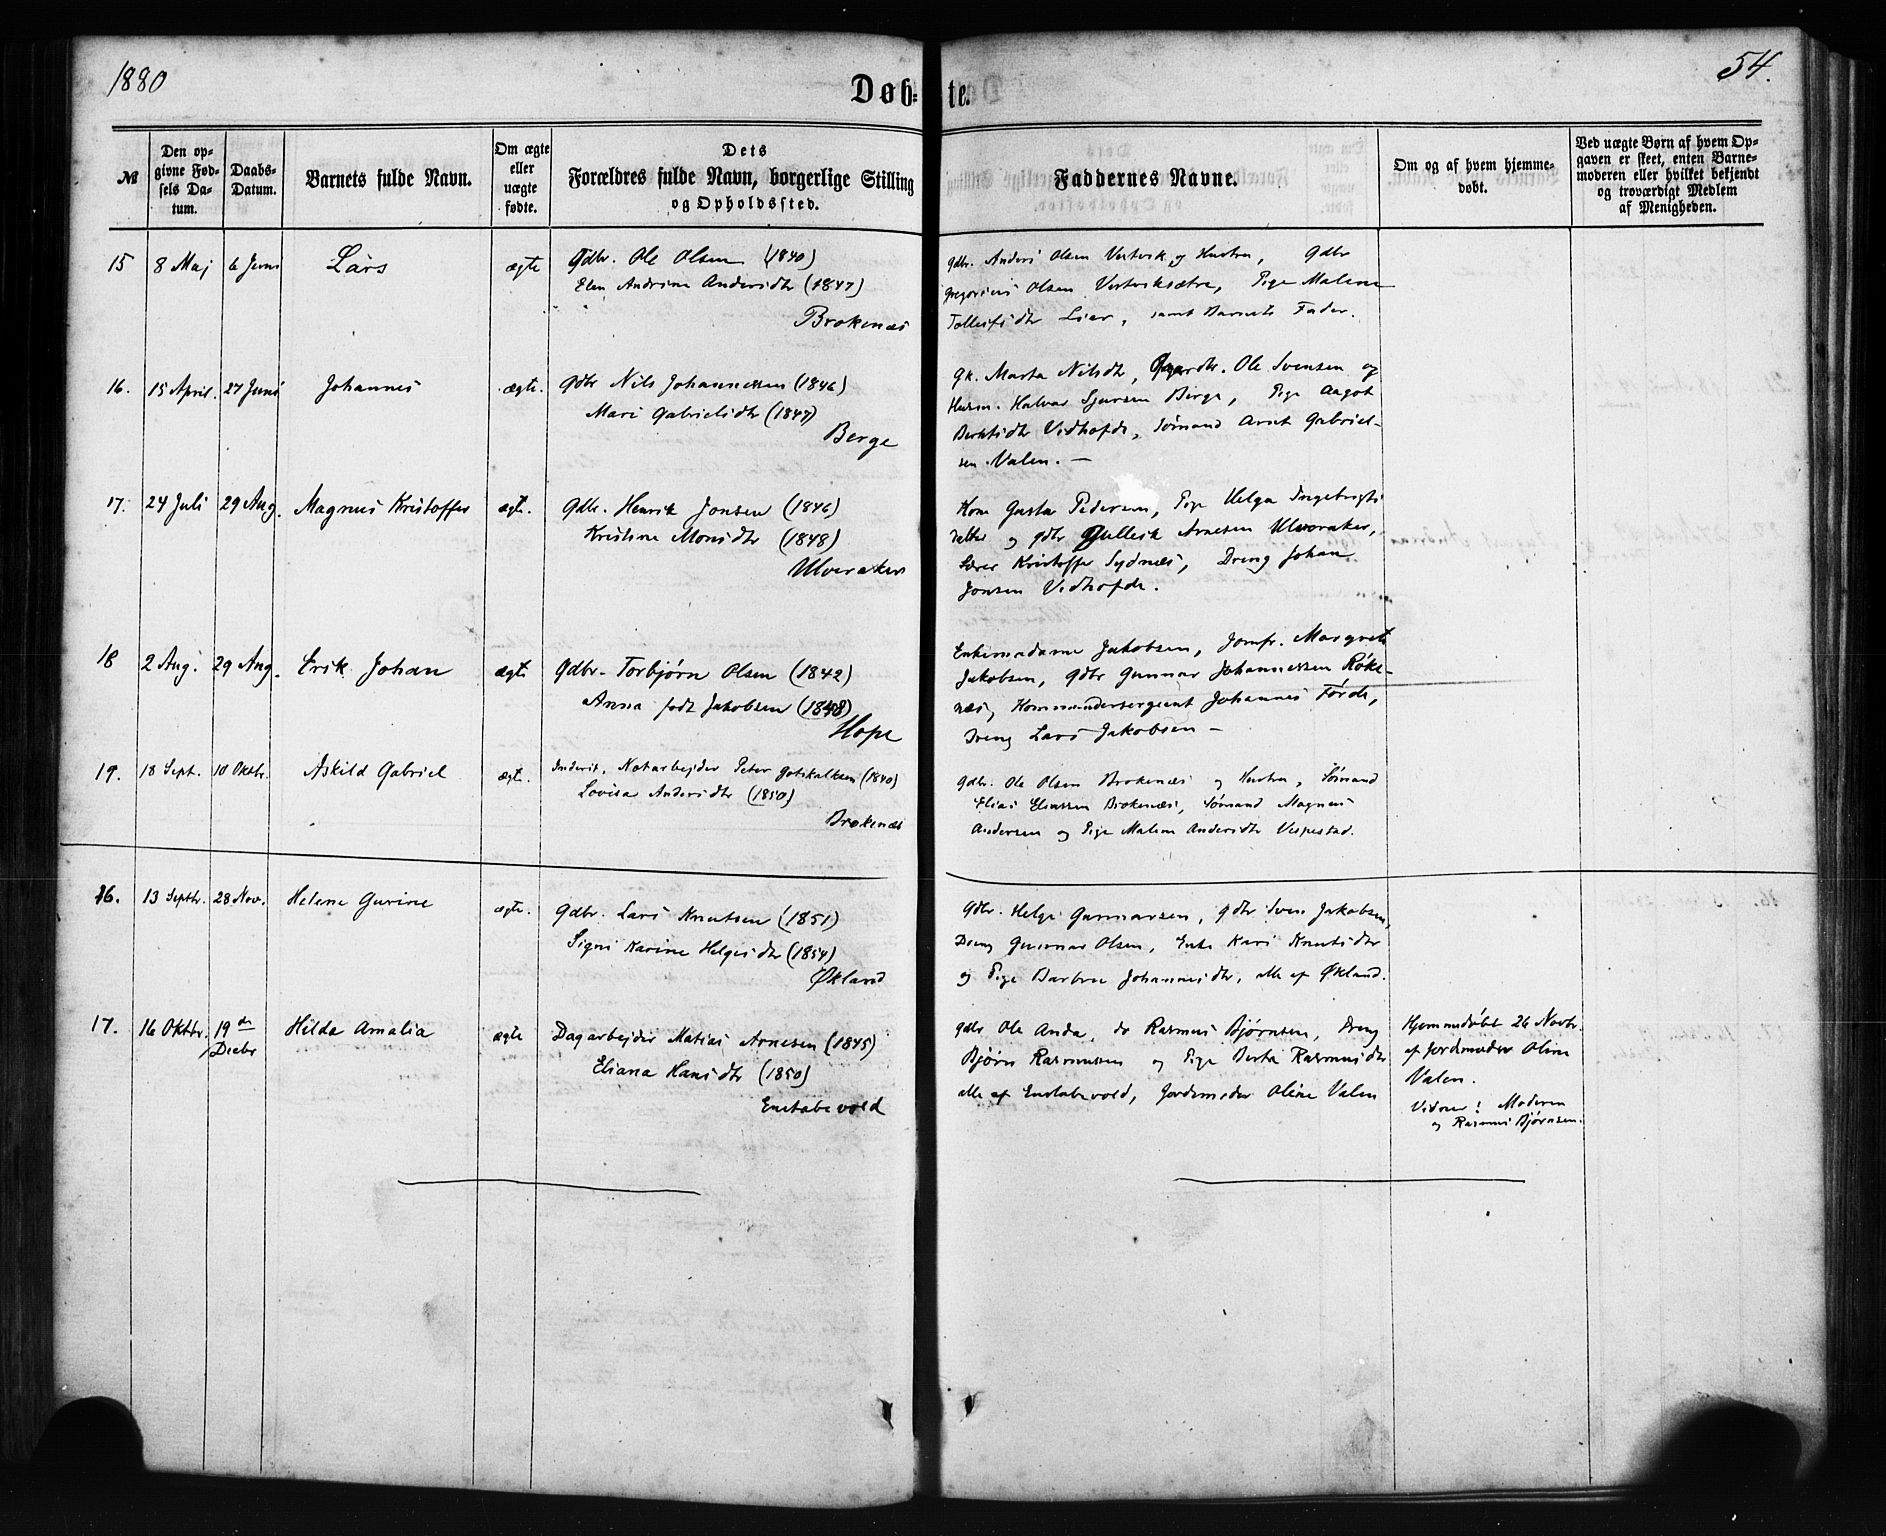 1880
Døb-
te.
54.
№
Den op-
givne Fød-
sels Da-
tum.
Daabs-
Datum.
Barnets fulde Navn.
Om ægte
eller
uægte
fødte.
Dets
Forældres fulde Navn, borgerlige Stilling
og Opholdssted.
Faddernes Navne.
Om og af hvem hjemme-
døbt.
Ved uægte Børn af hvem Op-
gaven er skeet, enten Barne-
moderen eller hvilket bekjendt
og troværdigt Medlem
af Menigheden.
15 8 Maj 6 Juni Lars ægte Gdbr. Ole Olsen (1840)
Elen Andrine Andersdtr (1847)
Brokenæs
Gdbr. Anders Olsen Vestvik og Hustru, Gdbr
Gregorius Olsen Vestviksætre, Pige Malene
Tollefsdtr Lier, samt Barnets Fader.
16. 15 April. 27 Juni Johannes ægte. Gdbr Nils Johannessen (1846)
Mari Gabrielsdtr (1847)
Berge
Gk. Marta Nilsdtr, Ole Svensen og
Husm. Halvor Sjursen Berge, Pige Aagot
Berntsdtr Vedhofde, Sømand Arnt Gabriel-
sen Valen. —
17. 24 Juli 29 Aug. Magnus Kristoffer ægte. Gdbr. Henrik Jonsen (1846)
Kristine Monsdtr (1848)
Ulveraker
Kone Gurta Pedersen, Pige Helga Ingebrigts
datter og gdbr Gullesk Arnesen Ulveraker,
Lærer Kristoffer Sydnæs, Dreng Johan
Jonsen Vedhofde.
18 2 Aug. 29 Aug. Erik Johan ægte Gdbr. Torbjørn Olsen (1842)
Anna født Jakobsen (1848)
Hope
Enkemadame Jakobsen, Jomfr. Margrete
Jakobsen, Gdbr Gunnar Johannessen Røke-
næs, Kommandersergeant Johannes Førde,
Dreng Lars Jakobsen —
19. 18 Sept. 10 Oktbr. Askild Gabriel ægte. Inderst, Notarbejder Peter Gotskalksen (1840)
Lovisa Andersdtr (1850)
Brokenæs
Gdbr. Ole Olsen Brokenæs og Hustru, Sømand
Elias Eliassen Brokenæs, Sømand Magnus
Andersen og Pige Malene Andersdtr Vespestad.
16. 13 Septbr. 28 Nov. Helene Gurine ægte. Gdbr. Lars Knutsen (1851)
Signi Karine Helgesdtr (1854)
Økland
Gdbr. Helge Gunnarsen, gdbr Sven Jakobsen,
Dreng Gunnar Olsen, Enke Kari Knutsdtr
og Pige Barbro Johannesdtr, alle af Økland.
17. 16 Oktbr. 19de Hilda Amalia ægte Dagarbejder Matias Arnesen (1845)
Decbr
Eliana Hansdtr (1850)
Enstabevold
gdbr Ole Anda, do Rasmus Bjørnsen, Dreng
Bjørn Rasmussen og Pige Berta Rasmusdtr
alle af Enstabevold, Jordemoder Oline Valen
Hjemmedøbt 26 Novbr.
af Jordemoder Oline
Valen.
Vidner: Moderen
og Rasmus Bjørnsen.